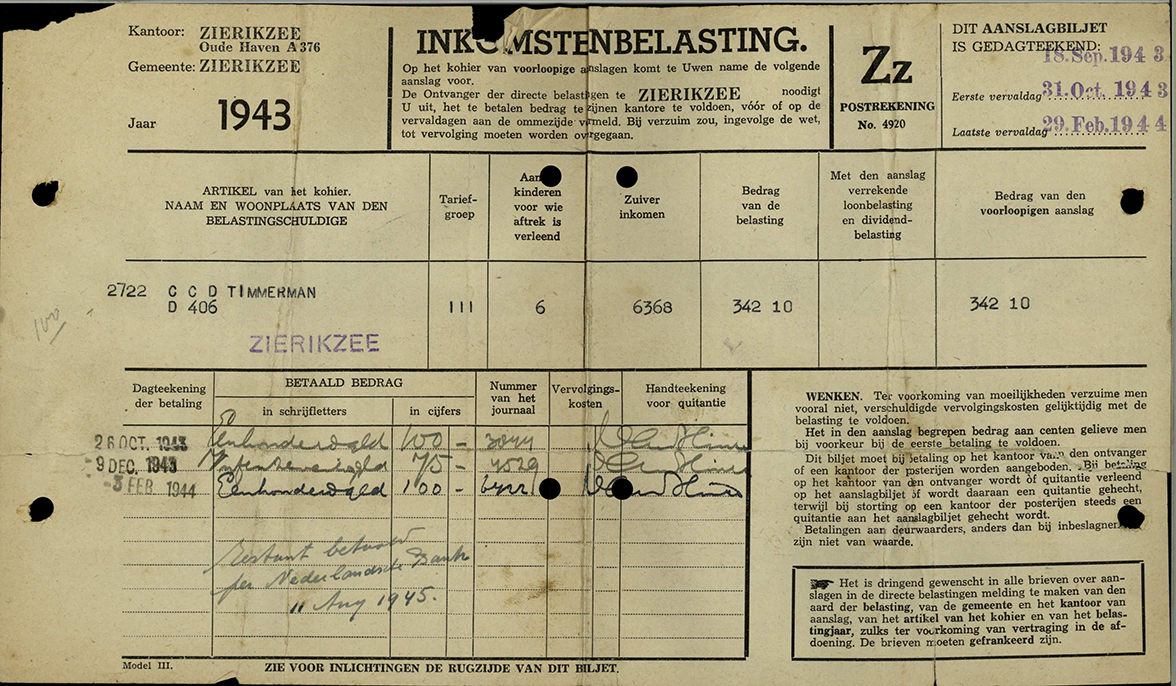 Kantoor: ZIERIKZEE
Oude Haven A 376
Gemeente: ZIERIKZEE
Jaar 1943
INKOMSTENBELASTING.
Op het kohier van voorloopige aanslagen komt te Uwen name de volgende
aanslag voor.
De Ontvanger der directe belastingen te ZIERIKZEE noodigt
U uit, het te betalen bedrag te zijnen kantore te voldoen, vóór of op de
vervaldagen aan de ommezijde vermeld. Bij verzuim zou, ingevolge de wet,
tot vervolging moeten worden overgegaan.
Zz
POSTREKENING
No. 4920
DIT AANSLAGBILJET
IS GEDAGTEEKEND:
18.Sep.1943
Eerste vervaldag 31.Oct.1943
Laatste vervaldag 29.Feb.1944
ARTIKEL van het kohier.
NAAM EN WOONPLAATS VAN DEN
BELASTINGSCHULDIGE
Tarief-
groep
kinderen
voor wie
aftrek is
verleend
Zuiver
inkomen
Bedrag
van de
belasting
Met den aanslag
verrekende
loonbelasting
en dividend-
belasting
Bedrag van den
voorloopigen aanslag
2722 C C D TIMMERMAN
D 406
ZIERIKZEE
III
6
6368
342 10
342 10
100
Dagteekening
der betaling
BETAALD BEDRAG
in schrijfletters
in cijfers
Nummer
van het
journaal
Vervolgings-
kosten
Handteekening
voor quitantie
26 OCT. 1943 Eenhonderd 100 -
9 DEC. 1943 75 - 4529
-3 FEB 1944 Eenhonderd 100 -
Restant betaald
per Nederlandsche Bank
11 Aug 1945.
WENKEN. Ter voorkoming van moeilijkheden verzuime men
vooral niet, verschuldigde vervolgingskosten gelijktijdig met de
belasting te voldoen.
Het in den aanslag begrepen bedrag aan centen gelieve men
bij voorkeur bij de eerste betaling te voldoen.
Dit biljet moet bij betaling op het kantoor van den ontvanger
of een kantoor der posterijen worden aangeboden. Bij betaling
op het kantoor van den ontvanger wordt òf quitantie verleend
op het aanslagbiljet òf wordt daaraan een quitantie gehecht,
terwijl bij storting op een kantoor der posterijen steeds een
quitantie aan het aanslagbiljet gehecht wordt.
Betalingen aan deurwaarders, anders dan bij
zijn niet van waarde.
Het is dringend gewenscht in alle brieven over aan-
slagen in de directe belastingen melding te maken van den
aard der belasting, van de gemeente en het kantoor van
aanslag, van het artikel van het kohier en van het belas-
tingjaar, zulks ter voorkoming van vertraging in de af-
doening. De brieven moeten gefrankeerd zijn.
Model III.
ZIE VOOR INLICHTINGEN DE RUGZIJDE VAN DIT BILJET.